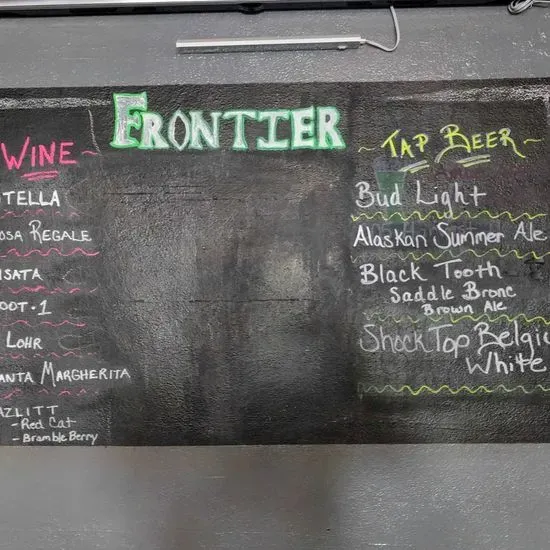 FRONTIER
WINE ~
TELLA
OSA REGALE
ISATA
OOT · 1
LOHR
ANTA MARGHERITA
AZLITT
- Red Cat
- BrambleBerry
~ TAP BEER ~
Bud Light
Alaskan Summer Ale
Black Tooth
Saddle Bronc
Brown Ale
Shock Top Belgi
White